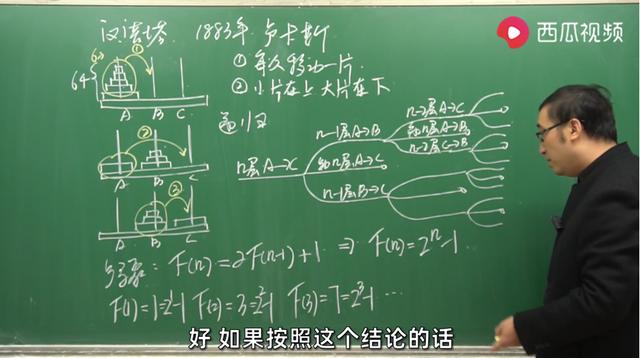 西瓜视频
汉诺塔 1883年 卢卡斯
① 每次移动一片
② 小片在上 大片在下
63 ①
64
A B C
递归
②
A B C
n层A→C
n-1层A→B
第n层A→C
n-1层B→C
n-2层A→C
第n-1层A→B
n-2层C→B
③
A B C
步数: F(n)=2F(n-1)+1 ⇒ F(n)=2ⁿ-1
F(1)=1=2¹-1 F(2)=3=2²-1 F(3)=7=2³-1 …
好 如果按照这个结论的话